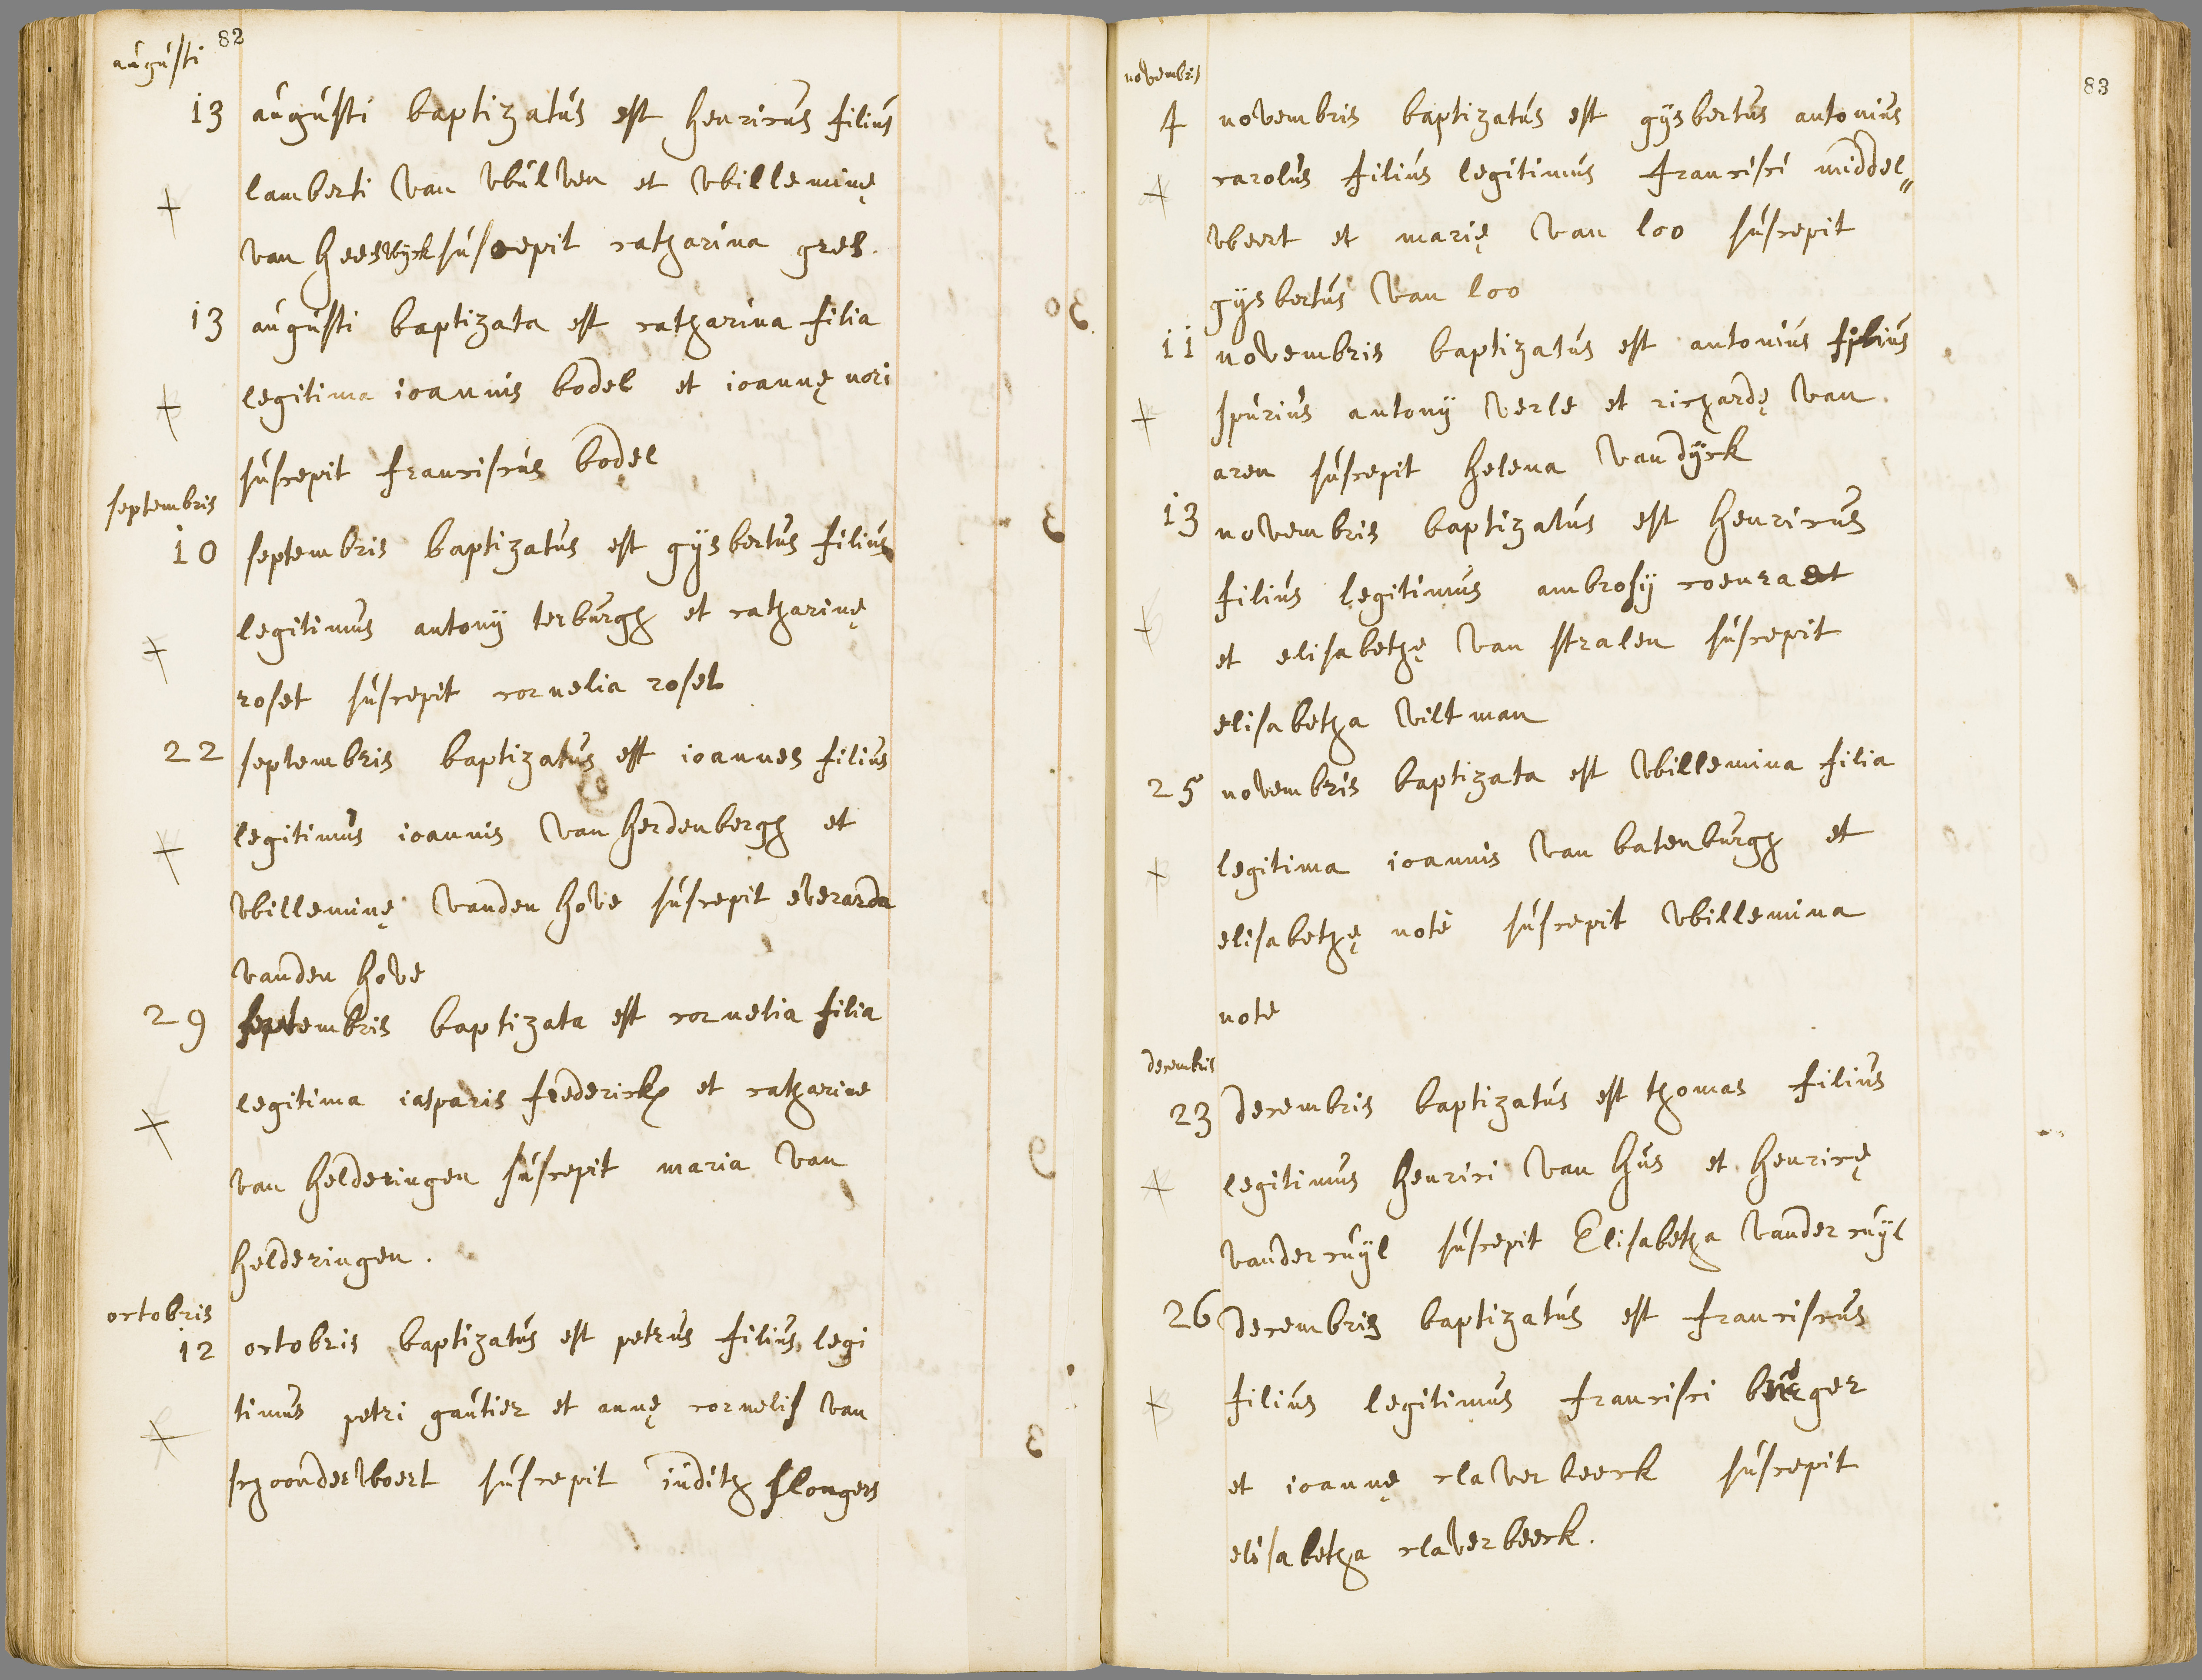 82
augusti
13 augusti baptizatus est henricus filius
lamberti van wulven et willeminę
van heeswyck suscepit catharina gres.
13 augusti baptizata est catharina filia
legitima ioannis bodel et ioannę nori
suscepit franciscus bodel
septembris
10 septembris baptizatus est gysbertus filius
legitimus antony terburgh et catharinę
roset suscepit cornelia roset
22 septembris baptizatus est ioannes filius
legitimus ioannis van herdenbergh et
willeminę vanden hove suscepit everarda
vanden hove
29 septembris baptizata est cornelia filia
legitima iasparis frederickx et catharine
van helderingen suscepit maria van
helderingen.
octobris
12 octobris baptizatus est petrus filius legi
timus petri gautier et annę cornelis van
schoonderwoert suscepit iudith slongers
83
novembris
4 novembris baptizatus est gysbertus antonius
carolus filius legitimus francisci middel„
weert et marię van loo suscepit
gysbertus van loo
11 novembris baptizatus est antonius filius
spurius antony verle et richardę van
aren suscepit helena van dyck
13 novembris baptizatus est henricus
filius legitimus ambrosy coenraet
et elisabethę van stralen suscepit
elisabetha viltman
25 novembris baptizata est willemina filia
legitima ioannis van batenburgh et
elisabethę note suscepit willemina
note
decembris
23 decembris baptizatus est thomas filius
legitimus henrici van hus et henricę
vander cuyl suscepit Elisabetha vander cuyl
26 decembris baptizatus est franciscus
filius legitimus francisci burger
et ioannę claverbeeck suscepit
elisabetha claverbeeck.